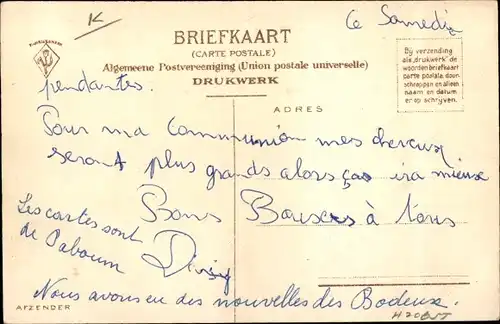 Ce Samedi
BRIEFKAART
(CARTE POSTALE)
Algemeene Postvereeniging (Union postale universelle)
DRUKWERK
Bij verzending
als „drukwerk" de
woorden briefkaart
carte postale, door-
schrappen en alleen
naam en datum
er op schrijven.
pendantes.
ADRES
Pour ma Communion mes cheveux
seront plus grands alors ças ira mieux
Bons Baisers à tous
Les cartes sont
de
Nous avons eu des nouvelles des
AFZENDER